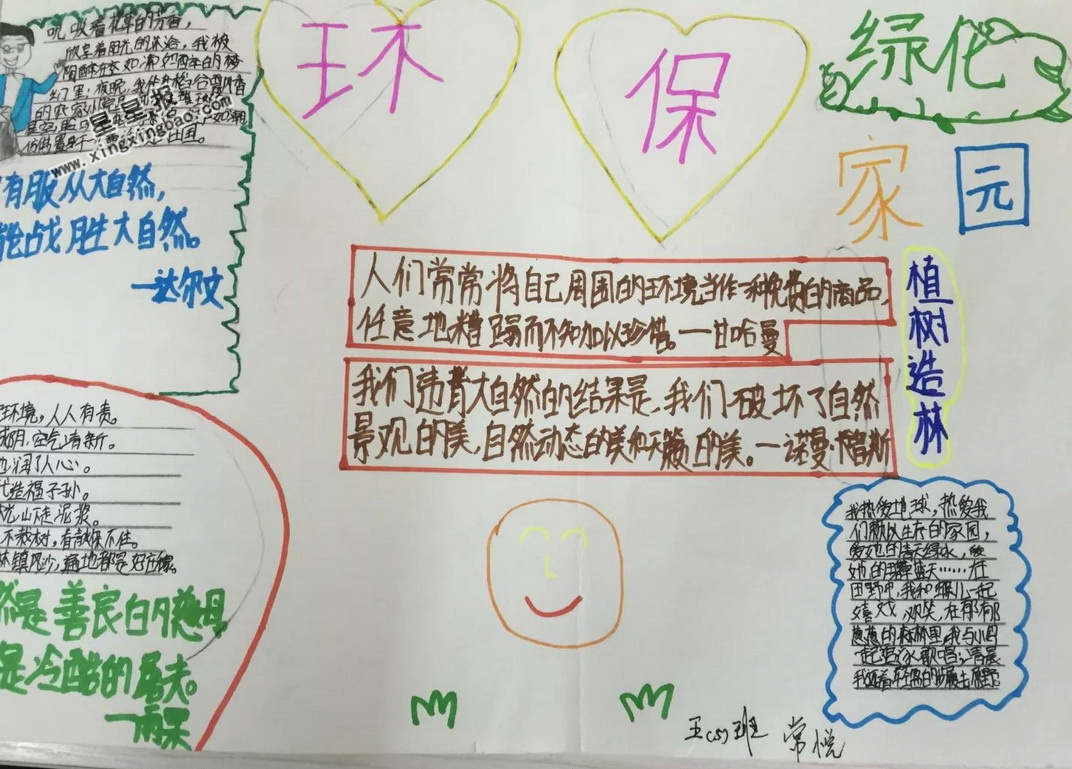 呼吸着花草的芳香，
欣享着阳光的沐浴，我被
星星报
www.xingxingbao.com
有服从大自然，
能战胜大自然。
—达尔文
环境，人人有责。
空气清新。
润了人心。
代造福子孙。
光山走泥浆。
不栽树，有粮保不住。
林镇风沙，遍地都是好庄稼。
然是善良的慈母
是冷酷的屠夫。
—雨果
环
保
绿化
家园
人们常常将自己周围的环境当作一种免费的商品，
任意地糟蹋而不知加以珍惜。—甘哈曼
我们违背大自然的结果是，我们破坏了自然
景观的美，自然动态的美和天籁的美。—诺曼·卡曾斯
植树造林
我热爱地球，热爱我
们赖以生存的家园，
爱她的青天绿水，爱
她的蓝天……在
田野中，我和一起
嬉戏、欢笑，在郁郁
葱葱的森林里，我与小鸟
一起歌唱；清晨
五(5)班 常悦